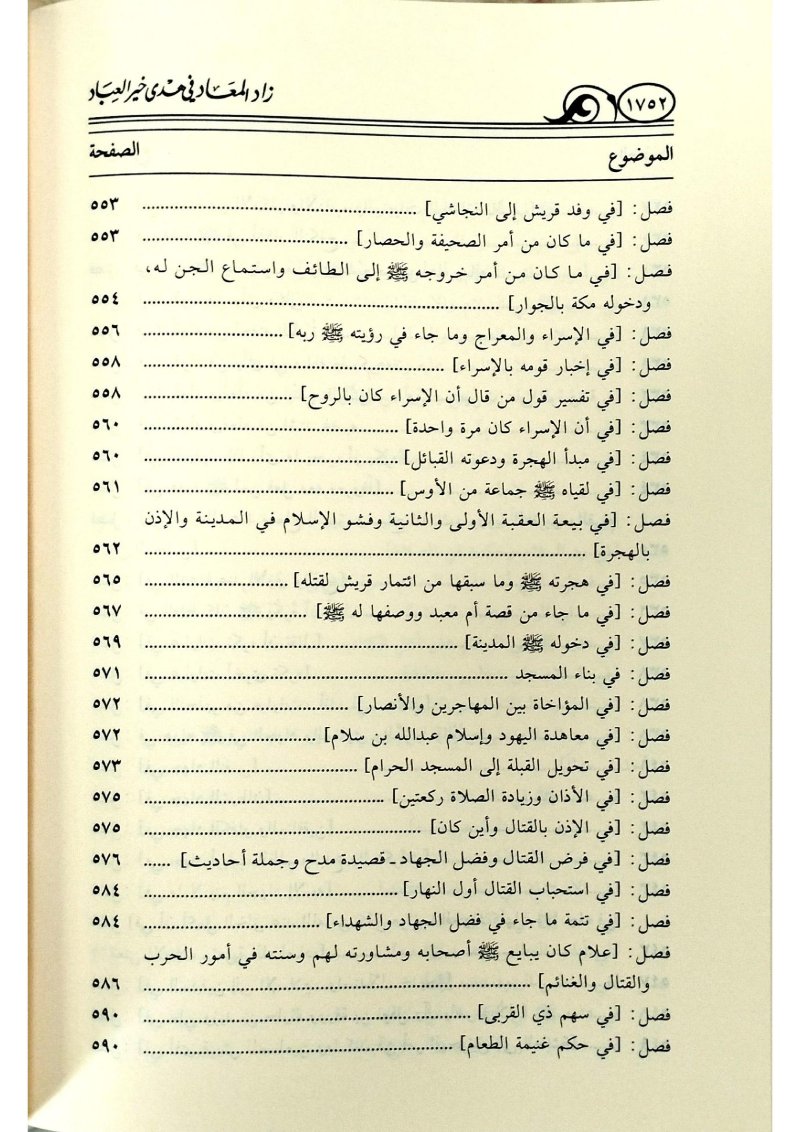 زاد المعاد في هدي خير العباد
١٧٥٢
الموضوع الصفحة
فصل: [في وفد قريش إلى النجاشي] ................................ ٥٥٣
فصل: [في ما كان من أمر الصحيفة والحصار] ................................ ٥٥٣
فصل: [في ما كان من أمر خروجه ﷺ إلى الطائف واستماع الجن له،
ودخوله مكة بالجوار] ................................ ٥٥٤
فصل: [في الإسراء والمعراج وما جاء في رؤيته ﷺ ربه] ................................ ٥٥٦
فصل: [في إخبار قومه بالإسراء] ................................ ٥٥٨
فصل: [في تفسير قول من قال أن الإسراء كان بالروح] ................................ ٥٥٨
فصل: [في أن الإسراء كان مرة واحدة] ................................ ٥٦٠
فصل: [في مبدأ الهجرة ودعوته القبائل] ................................ ٥٦٠
فصل: [في لقياه ﷺ جماعة من الأوس] ................................ ٥٦١
فصل: [في بيعة العقبة الأولى والثانية وفشو الإسلام في المدينة والإذن
بالهجرة] ................................ ٥٦٢
فصل: [في هجرته ﷺ وما سبقها من ائتمار قريش لقتله] ................................ ٥٦٥
فصل: [في ما جاء من قصة أم معبد ووصفها له ﷺ] ................................ ٥٦٧
فصل: [في دخوله ﷺ المدينة] ................................ ٥٦٩
فصل: في بناء المسجد ................................ ٥٧١
فصل: [في المؤاخاة بين المهاجرين والأنصار] ................................ ٥٧٢
فصل: [في معاهدة اليهود وإسلام عبدالله بن سلام] ................................ ٥٧٢
فصل: [في تحويل القبلة إلى المسجد الحرام] ................................ ٥٧٣
فصل: [في الأذان وزيادة الصلاة ركعتين] ................................ ٥٧٥
فصل: [في الإذن بالقتال وأين كان] ................................ ٥٧٥
فصل: [في فرض القتال وفضل الجهاد ـ قصيدة مدح وجملة أحاديث] ...... ٥٧٦
فصل: [في استحباب القتال أول النهار] ................................ ٥٨٤
فصل: [في تتمة ما جاء في فضل الجهاد والشهداء] ................................ ٥٨٤
فصل: [علام كان يبايع ﷺ أصحابه ومشاورته لهم وسنته في أمور الحرب
والقتال والغنائم] ................................ ٥٨٦
فصل: [في سهم ذي القربى] ................................ ٥٩٠
فصل: [في حكم غنيمة الطعام] ................................ ٥٩٠